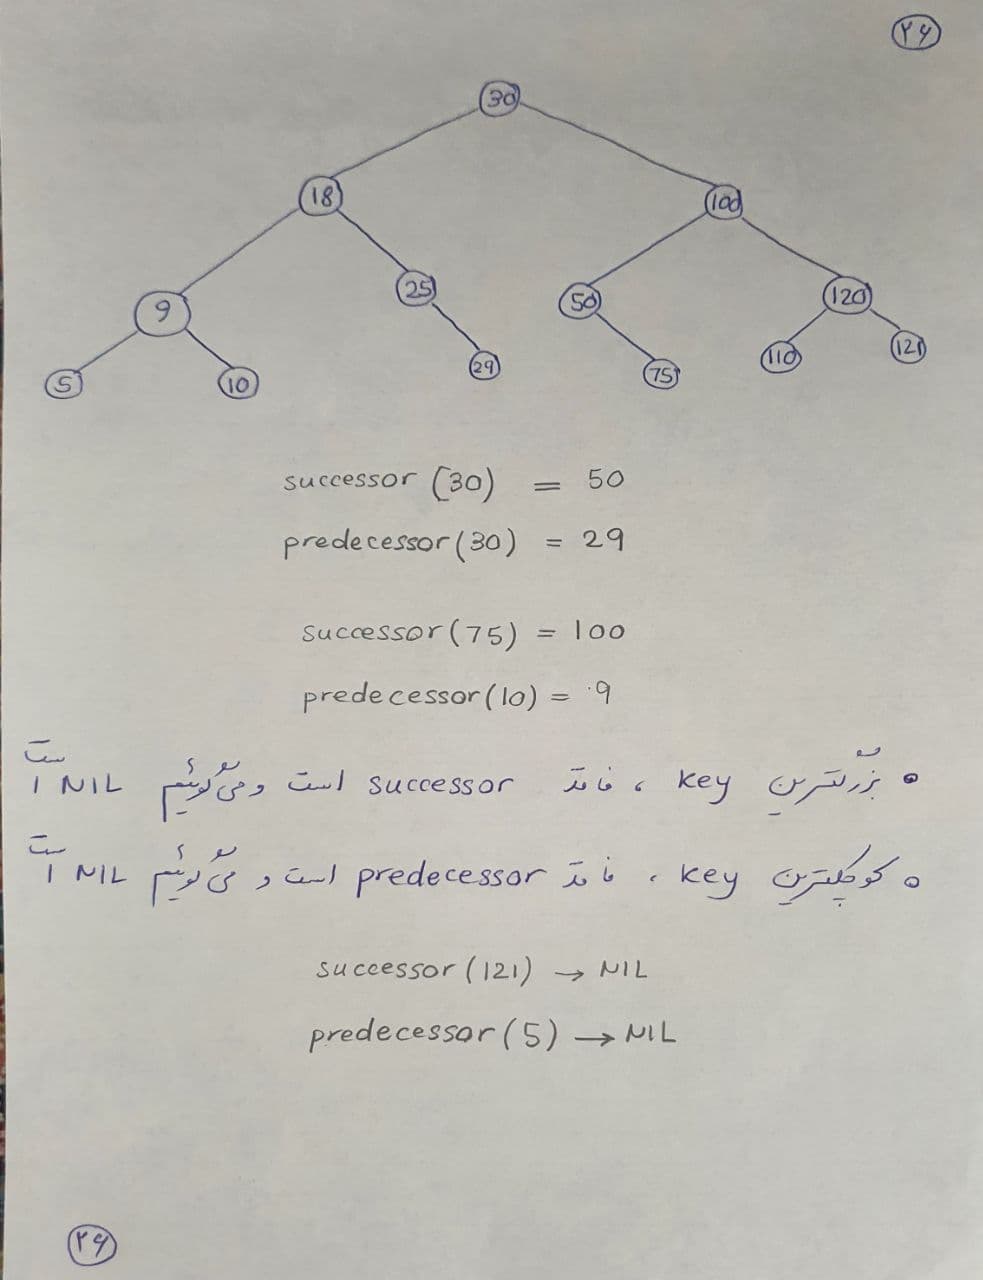 ۲۶
30
18
100
9
25
50
120
5
10
29
75
110
121
successor (30) = 50
predecessor (30) = 29
successor (75) = 100
predecessor (10) = 9
• بزرگترین key ، فاقد successor است و می‌گوئیم NIL است
• کوچکترین key ، فاقد predecessor است و می‌گوئیم NIL است
successor (121) → NIL
predecessor (5) → NIL
۲۶